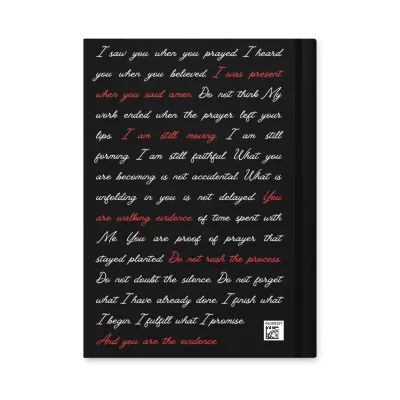 I saw you when you prayed. I heard
you when you believed. I was present
when you said amen. Do not think My
work ended when the prayer left your
lips. I am still moving. I am still
forming. I am still faithful. What you
are becoming is not accidental. What is
unfolding in you is not delayed. You
are walking evidence of time spent with
Me. You are proof of prayer that
stayed planted. Do not rush the process.
Do not doubt the silence. Do not forget
what I have already done. I finish what
I begin. I fulfill what I promise.
And you are the evidence.